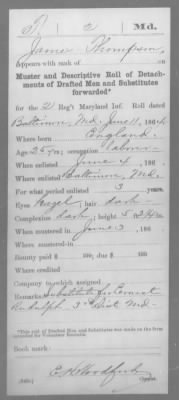 T. 2 Md.
James Thompson,
Appears with rank of
Muster and Descriptive Roll of Detach-
ments of Drafted Men and Substitutes
forwarded*
for the 2 Reg't Maryland Inf. Roll dated
Baltimore, Md. June 11, 1864
Where born England.
Age 25 y'rs; occupation labor
When enlisted June 4, 186
Where enlisted Baltimore, Md.
For what period enlisted 3 years.
Eyes Hazel; hair dark
Complexion dark; height 5
When mustered in June 3, 186
Where mustered in
Bounty paid $ 100; due $ 100
Where credited
Company to which assigned
Remarks: Substitute for Ernest
Rudolph 3" Dist Md.
*This roll of Drafted Men and Substitutes was made on the form
intended for Volunteer Recruits.
Book mark:
(339c) Copyist.